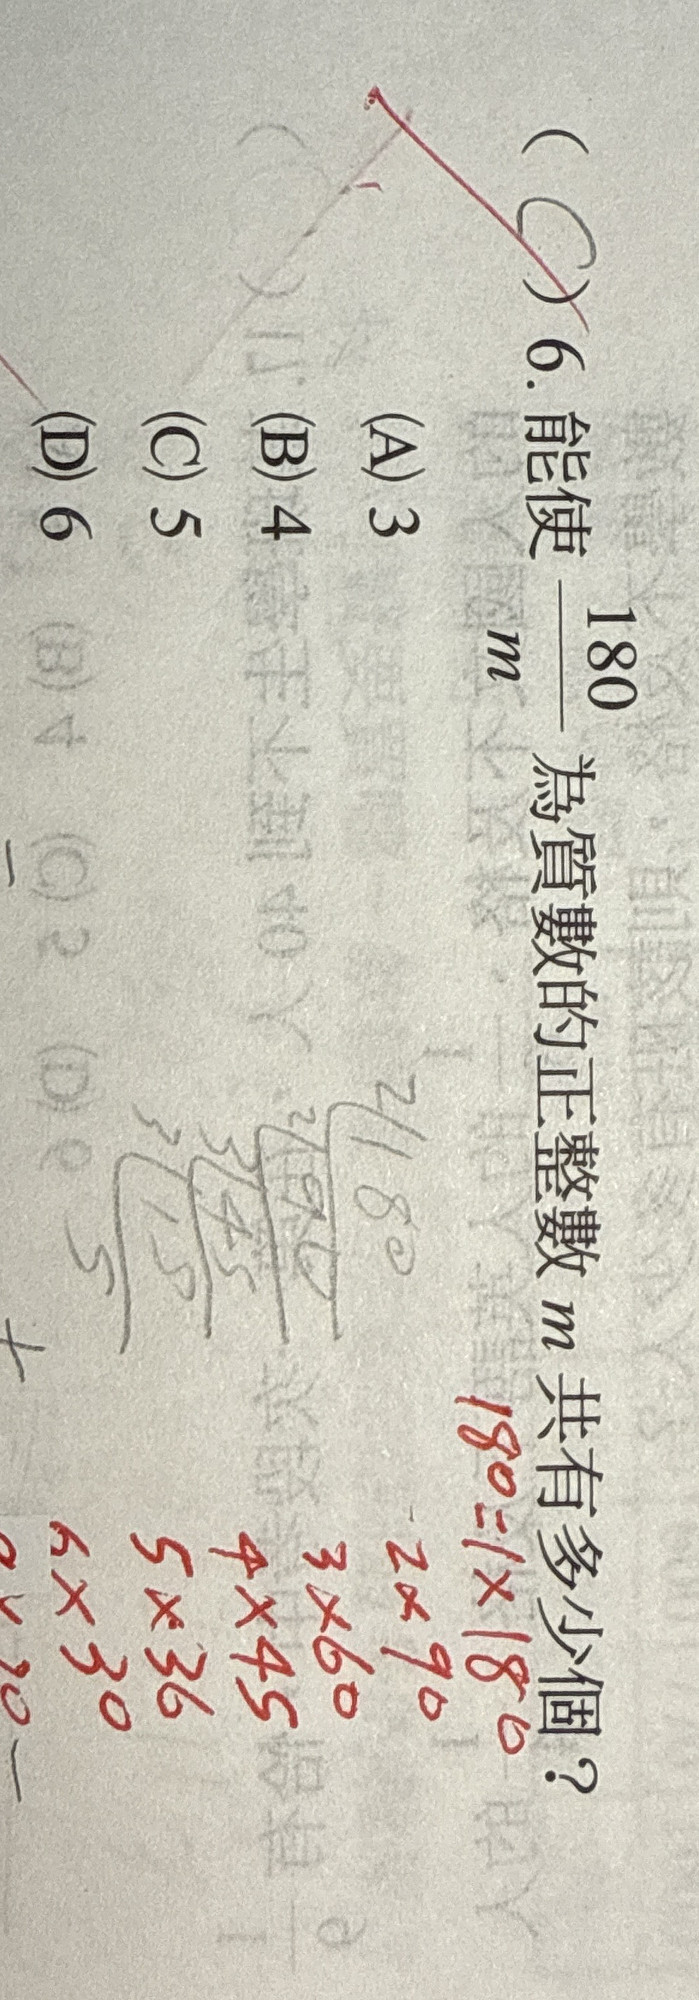 ( C ) 6. 能使 180/m 為質數的正整數 m 共有多少個？
(A) 3
(B) 4
(C) 5
(D) 6
2 180
2 90
3 45
3 15
5
180=1×180
2×90
3×60
4×45
5×36
6×30